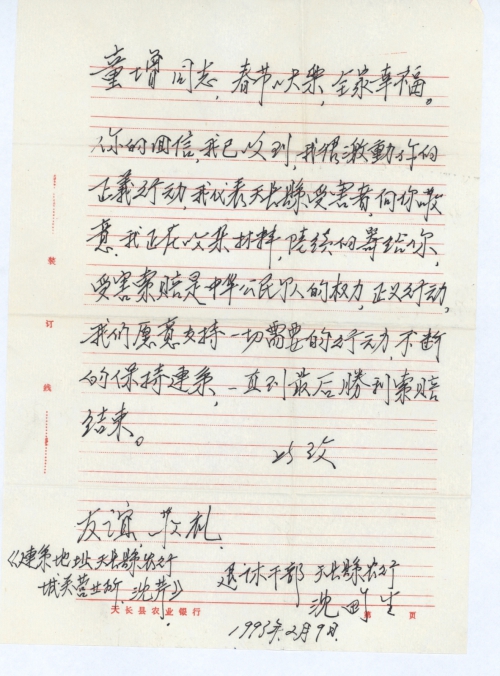 童增同志，春节快乐，全家幸福。
你的回信，我已收到，我很激動你的
正義行动，我代表天长縣受害者，向你敬
意，我正在收集材料，陸续的寄给你，
受害索赔是中华公民个人的权力，正义行动，
我们愿意支持一切需要的行动，不断
的保持連系，一直到最后勝利索赔
结束。
此致
友谊 敬礼
《連系地址天长縣农行
城关营业所，沈芹》
退休干部 天长縣农行
沈 生
1993年2月9日
装
订
线
天长县农业银行
第 页